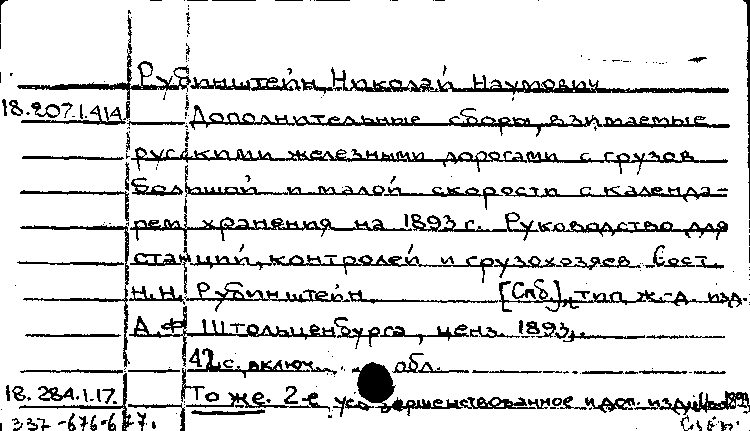 Рубинштейн, Николай Наумович
18.207.1.414 Дополнительные сборы, взимаемые
русскими железными дорогами с грузов
большой и малой скорости с календа-
рем хранения на 1893 г. Руководство для
станций, контролей и грузохозяев. Сост.
Н.Н. Рубинштейн. [Спб], тип. ж.-д. изд.
А.Ф. Штольценбурга, ценз. 1893.
42 с. включ. обл.
18.284.1.17. То же. 2-е усовершенствованное и доп. изд. 1893
337-676-677.